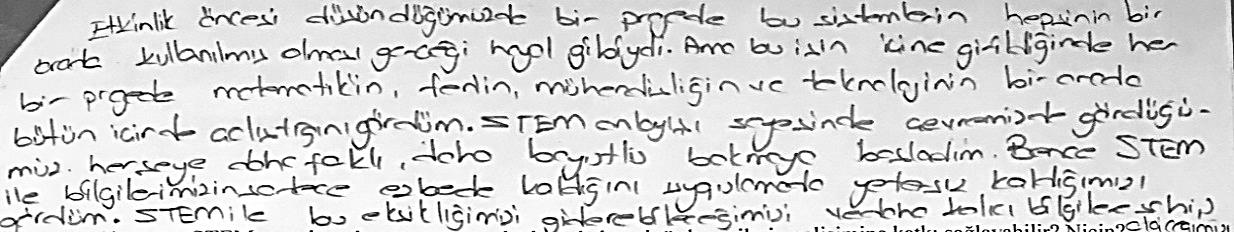 Etkinlik öncesi düşündüğümüzde bir projede bu sistemlerin hepsinin bir
arada kullanılmış olması gerçeği hayal gibiydi. Ama bu işin içine girildiğinde her
bir projede matematikin, fenin, mühendisliğin ve teknolojinin bir arada
bütün içinde gördüm. STEM anlayışı sayesinde çevremizde gördüğü-
müz herşeye daha faklı, daha boyutlu bakmaya başladım. Bence STEM
ile bilgilerimizin sadece ezbede kaldığını uygulamada yetersiz kaldığımızı
gördüm. STEM ile bu eksikliğimizi giderebileceğimizi ve daha kalıcı bilgilere sahip
olacağımızı